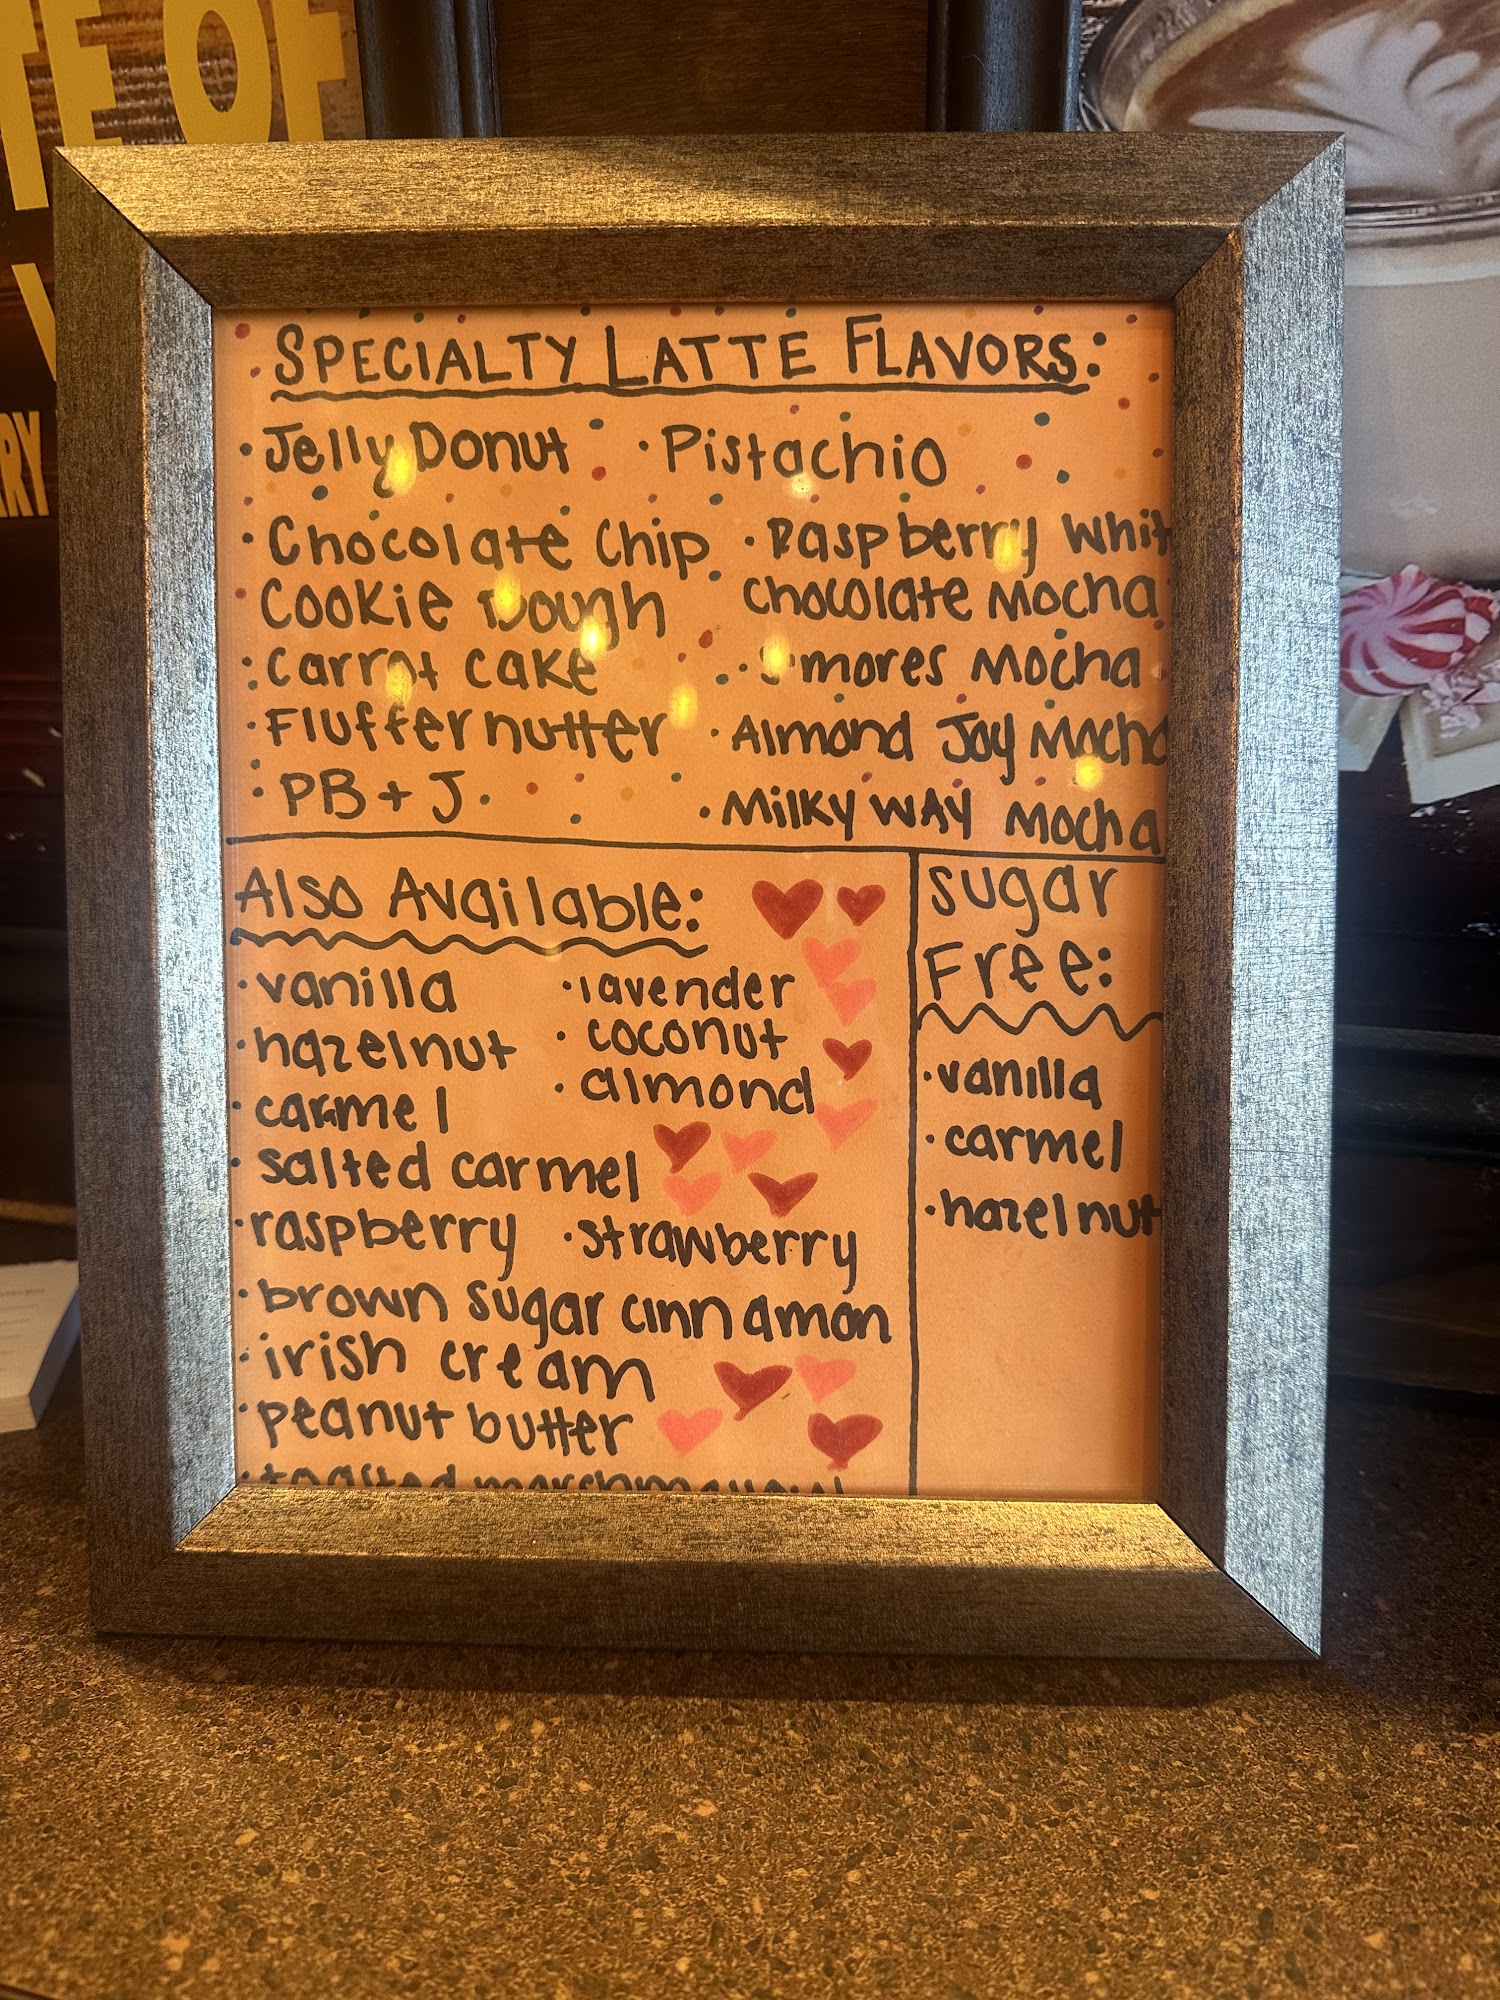 TE OF
RY
SPECIALTY LATTE FLAVORS:
· Jelly Donut · Pistachio
· Chocolate Chip Cookie Dough
· Raspberry Whit Chocolate Mocha
· Carrot Cake · S'mores Mocha
· Fluffernutter · Almond Joy Mocha
· PB + J · Milky Way Mocha
Also Available:
· vanilla · lavender
· hazelnut · coconut
· carmel · almond
· salted carmel
· raspberry · strawberry
· brown sugar cinnamon
· irish cream
· peanut butter
· toasted marshmallow
Sugar
Free:
· vanilla
· carmel
· hazelnut